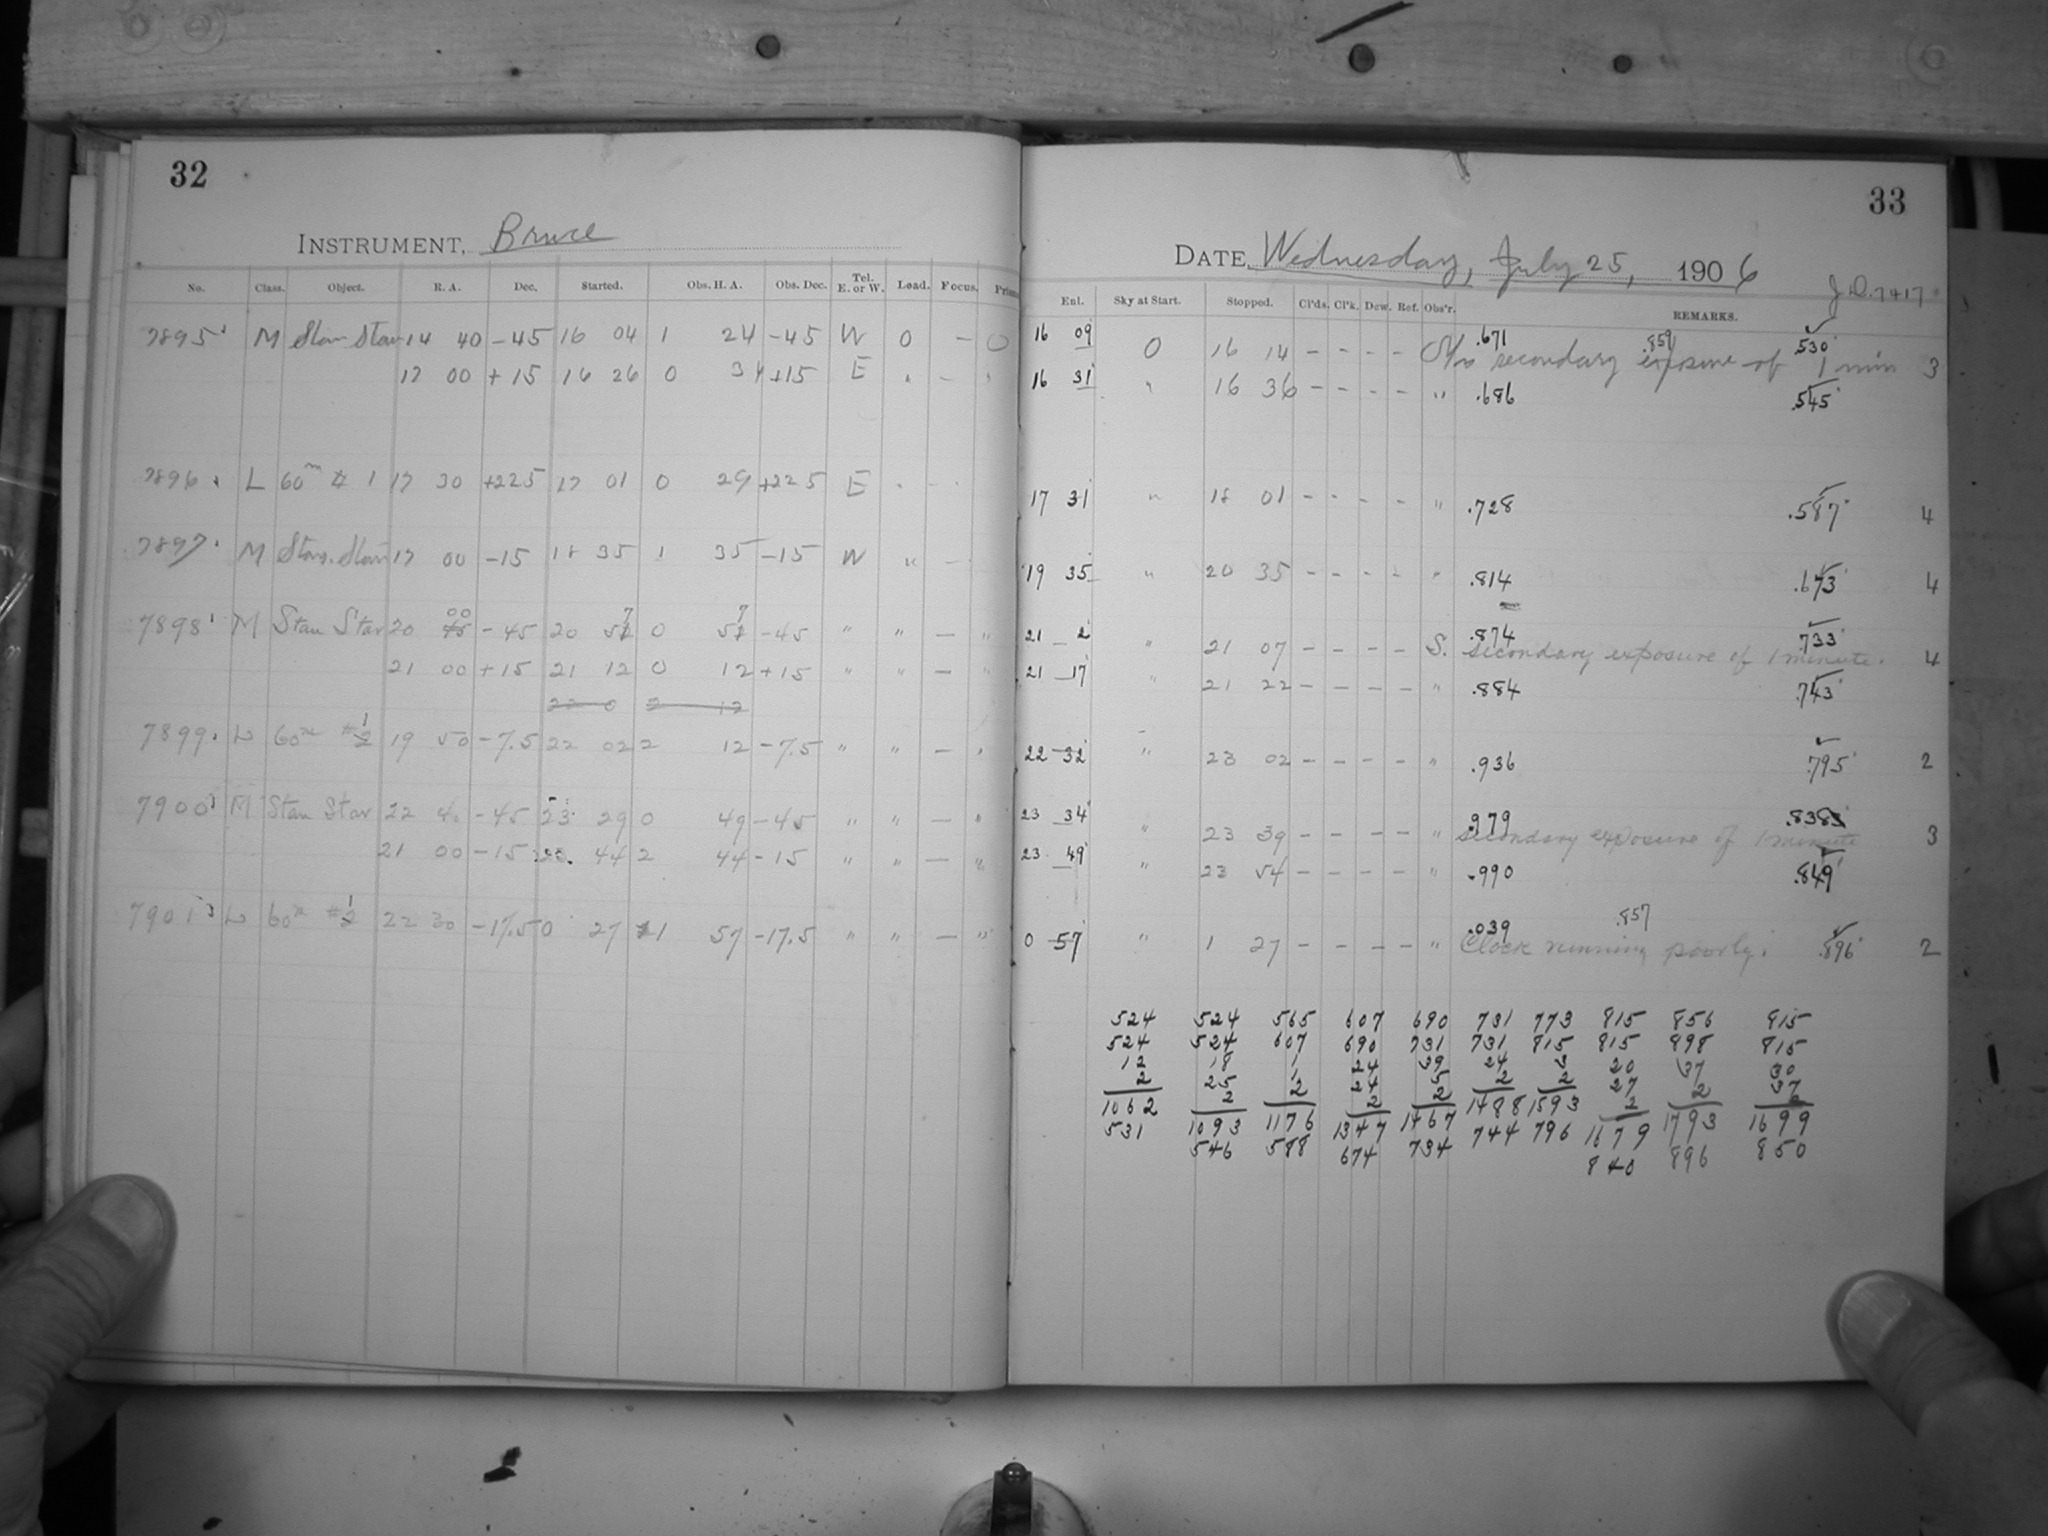 32
INSTRUMENT, Bruce
No. Class. Object. R. A. Dec. Started. Obs. H. A. Obs. Dec. Tel. E. or W. Load. Focus. Prism
7895 M Stan Stars 14 40 -45 16 04 1 24 -45 W 0 - 0
17 00 +15 16 26 0 34 +15 E " - "
7896 L 60m # 1 17 30 +22.5 17 01 0 29 +22.5 E " -
7897 M Stan. Stars 17 00 -15 18 35 1 35 -15 W " -
7898 M Stan Star 20 00 -45 20 57 0 57 -45 " " - "
21 00 +15 21 12 0 12 +15 " " - "
22 0 2 12
7899 L 60m #1 19 50 -7.5 22 02 2 12 -7.5 " " - "
7900 M Stan Star 22 40 -45 23 29 0 49 -45 " " - "
21 00 -15 23 44 2 44 -15 " " - "
7901 L 60m #1 22 30 -17.5 0 27 1 57 -17.5 " " - "
33
DATE, Wednesday, July 25, 1906
J.D. 7417
Ent. Sky at Start. Stopped. Cl'ds. Cl'k. Dew. Ref. Obs'r. REMARKS.
.671 .859 530
16 09 0 16 14 - - - - secondary exposure of 1 min 3
16 31 " 16 36 - - - - " .686 .545
17 31 " 18 01 - - - - " .728 .587 4
19 35 " 20 35 - - - - " .814 .673 4
.874 733
21 2 " 21 07 - - - - S. Secondary exposure of 1 minute. 4
21 17 " 21 22 - - - - " .884 743
22 32 " 23 02 - - - - " .936 .795 2
979 .838
23 34 " 23 39 - - - - " Secondary exposure of 1 minute 3
23 49 " 23 54 - - - - " .990 .849
.039 .857
0 57 " 1 27 - - - - " Clock running poorly. .896 2
524 524 565 607 690 731 773 815 856 815
524 524 607 690 731 731 815 815 898 815
12 18 1 24 39 24 3 20 37 30
2 25 1 24 5 2 2 27 2 37
2 2 2 2 2
1062 1093 1176 1347 1467 1488 1593 1679 1793 1699
531 546 588 674 734 744 796 840 896 850